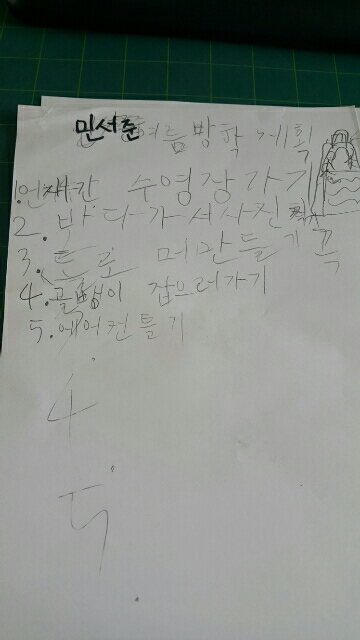 민서준 여름방학 계획
1. 언재간 수영장 가기
2. 바다가서 사진 찍기
3. 메만들기 꼭
4. 골뱅이 잡으러가기
5. 에어컨틀기
4
5